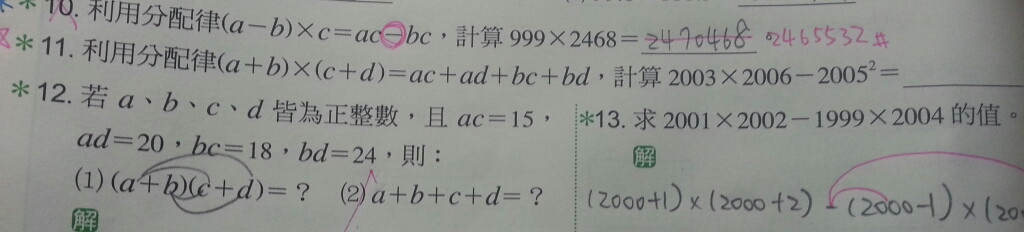 10. 利用分配律(a－b)×c＝ac－bc，計算 999×2468＝ 2470468 。2465532
＊11. 利用分配律(a＋b)×(c＋d)＝ac＋ad＋bc＋bd，計算 2003×2006－2005²＝
＊12. 若 a、b、c、d 皆為正整數，且 ac＝15，
ad＝20，bc＝18，bd＝24，則：
(1) (a＋b)(c＋d)＝？ (2) a＋b＋c＋d＝？
解
＊13. 求 2001×2002－1999×2004 的值。
解
(2000+1)×(2000+2)-(2000-1)×(20